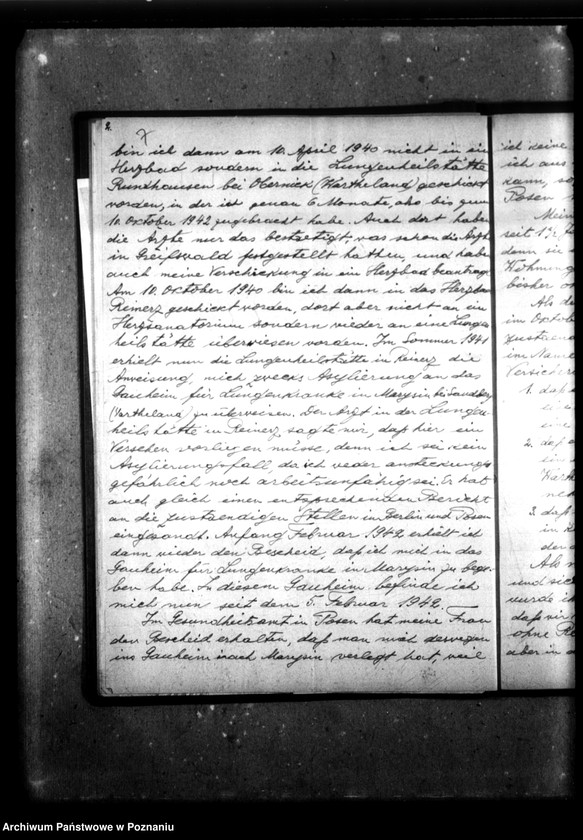 2.
bin ich dann am 10. April 1940 nicht in ein
Herzbad sondern in die Lungenheilstätte
Rundhausen bei Obernick (Wartheland) geschickt
worden, in der ich genau 6 Monate, also bis zum
10. Oktober 1942 zugebracht habe. Auch dort haben
die Ärzte nur das bestaetigt, was schon die Ärzte
in Greifswald festgestellt hatten, und habe
auch meine Verschickung in ein Herzbad beantrag
Am 10. Oktober 1940 bin ich dann in das Herzba
Reinerz geschickt worden, dort aber nicht an ein
Herzsanatorium sondern wieder an eine Lungen
heilstätte überwiesen worden. Im Sommer 1941
erhielt nun die Lungenheilstätte in Reinerz die
Anweisung, mich zwecks Asylierung an das
Gauheim für Lungenkranke in Marysin bei Sandberg
(Wartheland) zu überweisen. Der Arzt in der Lungen
heilstätte in Reinerz sagte mir, daß hier ein
Versehen vorliegen müsse, denn ich sei kein
Asylierungsfall, da ich weder ansteckungs
gefährlich noch arbeitsunfähig sei. Er hat
auch gleich einen entsprechenden Bericht
an die zustaendigen Stellen in Berlin und Posen
eingesandt. Anfang Februar 1942 erhielt ich
dann wieder den Bescheid, daß ich mich in das
Gauheim für Lungenkranke in Marysin zu bege-
ben habe. In diesem Gauheim befinde ich
mich nun seit dem 5. Februar 1942.
Im Gesundheitsamt in Posen hat meine Frau
den Bescheid erhalten, daß man mich deswegen
ins Gauheim nach Marysin verlegt hat, weil
ich keine
ich aus
kann, so
Posen
Mein
seit 1½
dann sie
Wohnung
bisher
Als de
im Oktob
zustaend
im Name
Versicher
1. daß
eine
eine
2. daß
Wart
3. daß
in d
der
Als
und sic
wurde i
daß wir
ohne
aber in
Archiwum Państwowe w Poznaniu